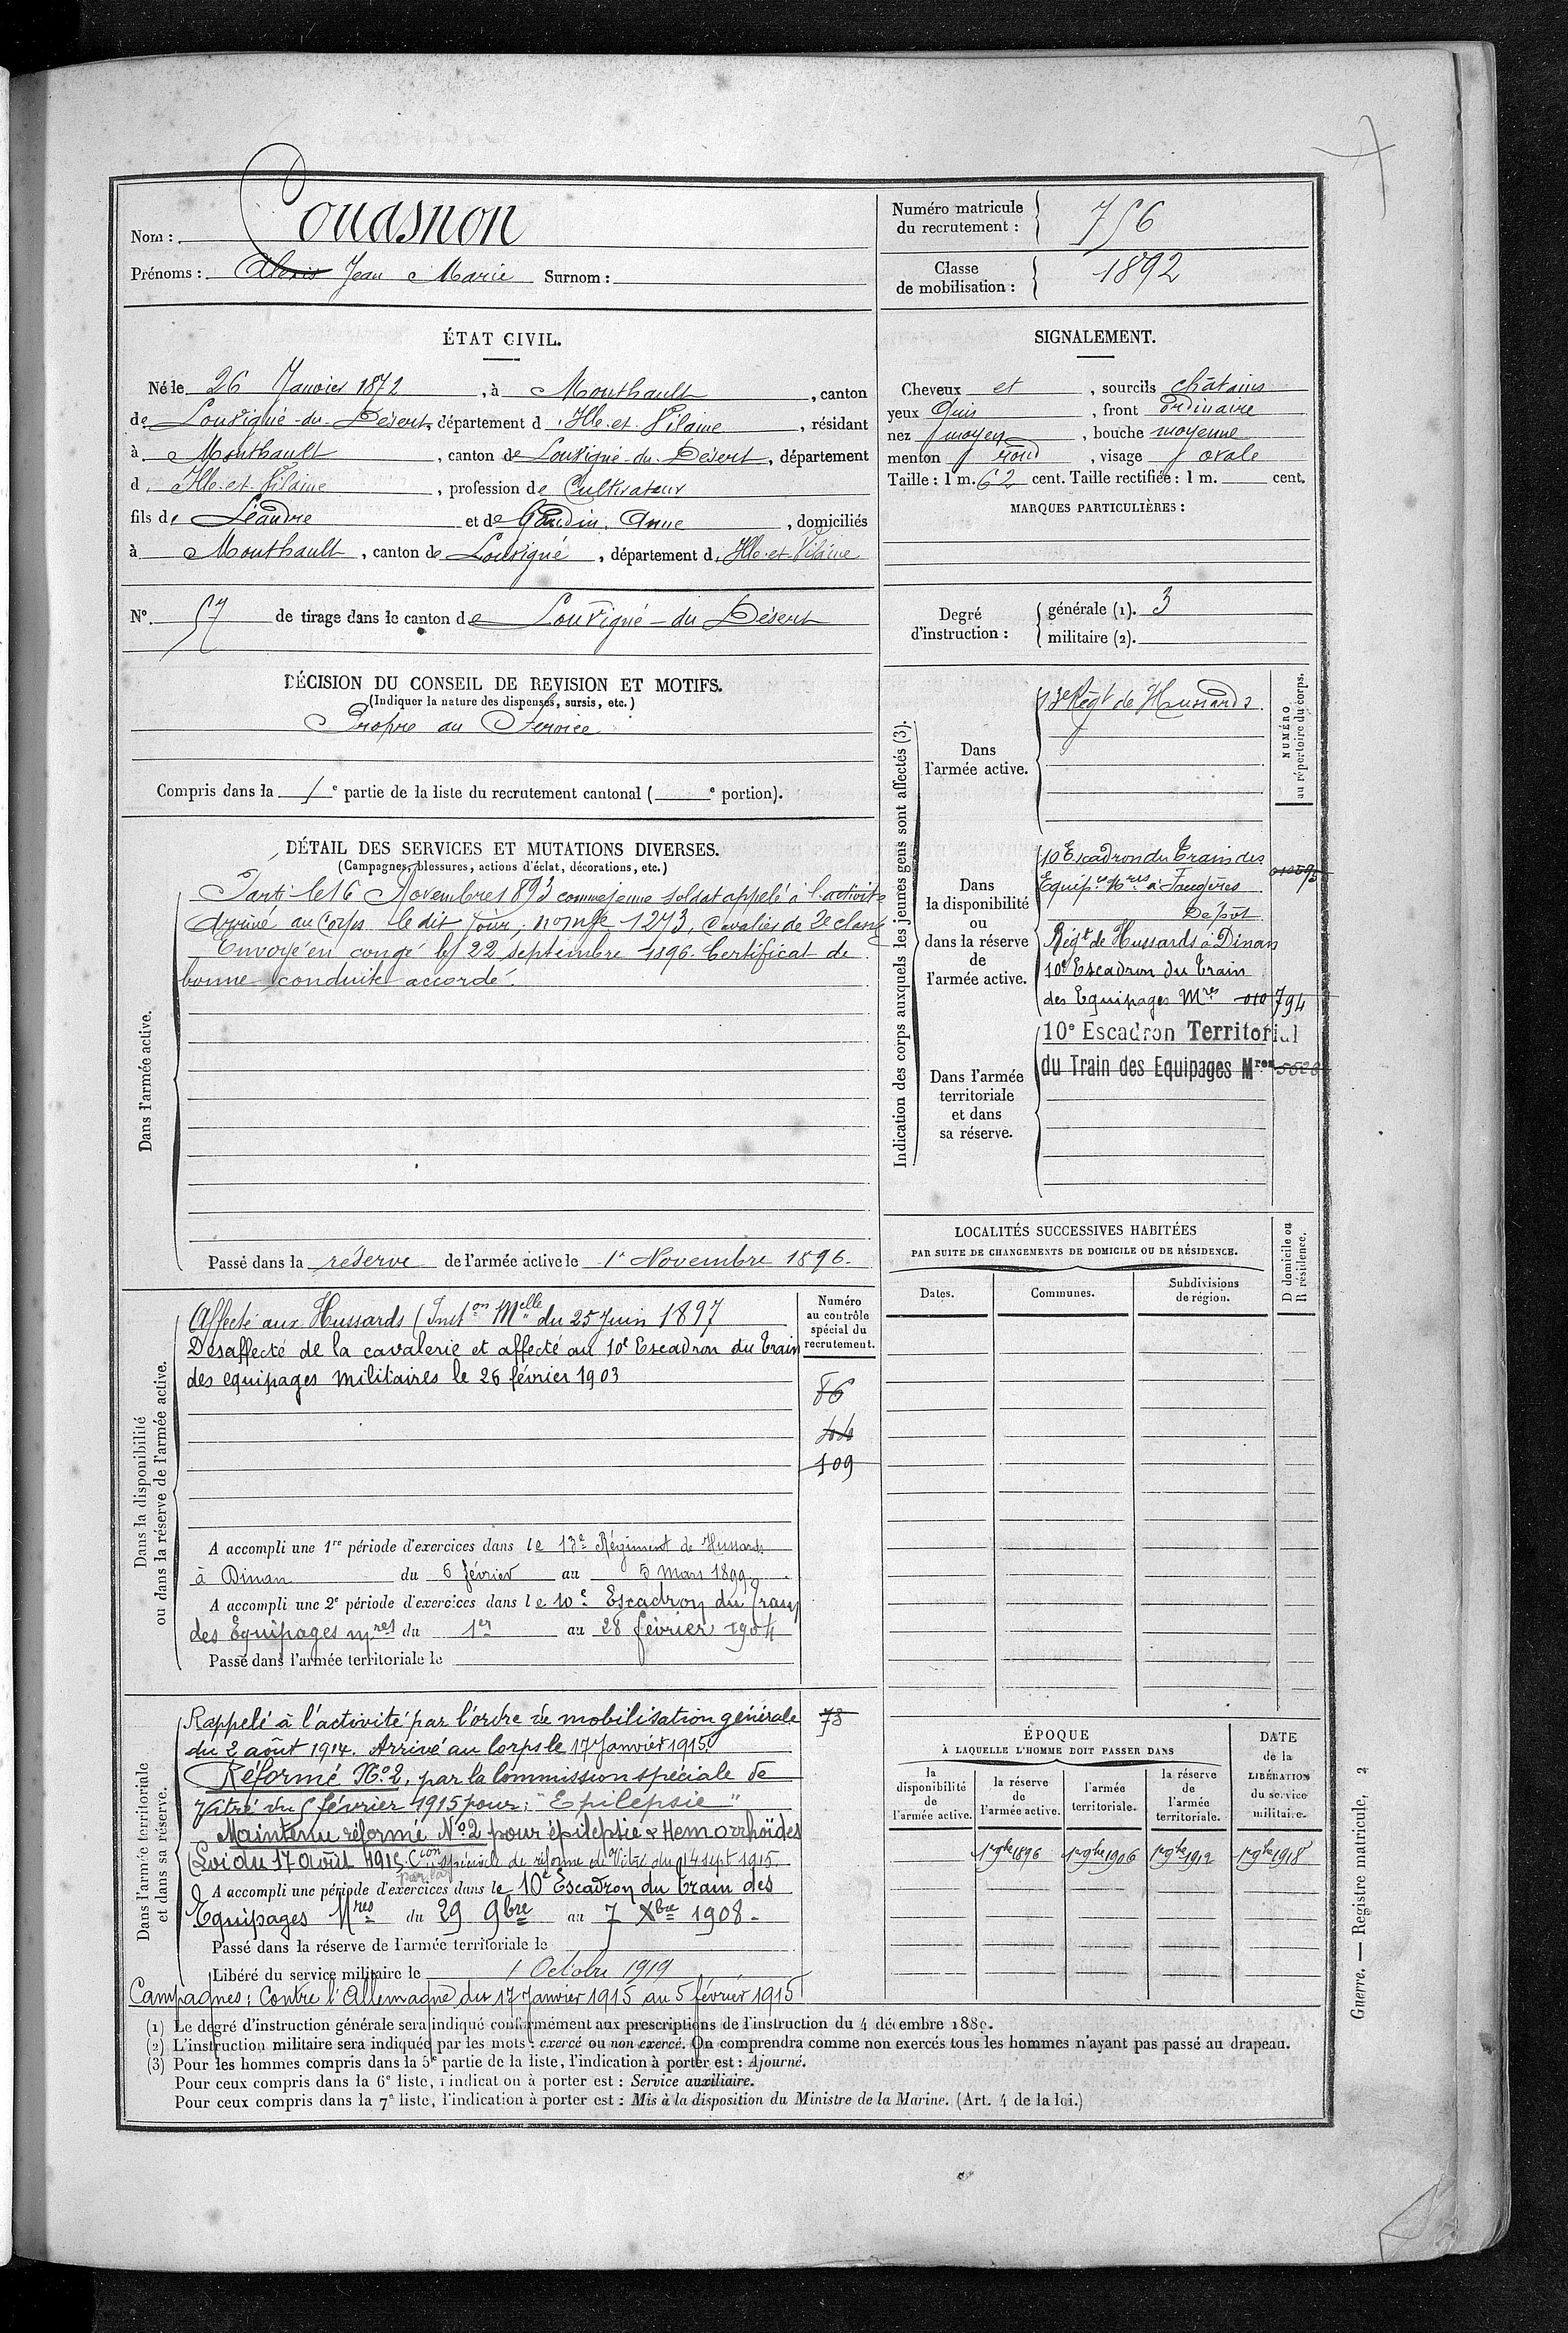 Nom : Couasnon
Prénoms : Alexis Jean Marie Surnom :
Numéro matricule du recrutement : 756
Classe de mobilisation : 1892
ÉTAT CIVIL.
Né le 26 Janvier 1872, à Monthault, canton
de Louvigné-du-Désert, département d'Ille-et-Vilaine, résidant
à Monthault, canton de Louvigné-du-Désert, département
d'Ille-et-Vilaine, profession de Cultivateur
fils de Léandre et de Gaudin, Anne, domiciliés
à Monthault, canton de Louvigné, département d'Ille-et-Vilaine
N° 57 de tirage dans le canton de Louvigné-du-Désert
SIGNALEMENT.
Cheveux et, sourcils châtains
yeux Gris, front ordinaire
nez moyen, bouche moyenne
menton rond, visage ovale
Taille : 1 m. 62 cent. Taille rectifiée : 1 m. cent.
MARQUES PARTICULIÈRES :
Degré d'instruction : générale (1). 3
militaire (2).
DÉCISION DU CONSEIL DE REVISION ET MOTIFS.
(Indiquer la nature des dispenses, sursis, etc.)
Propre au Service
Compris dans la 1e partie de la liste du recrutement cantonal ( e portion).
DÉTAIL DES SERVICES ET MUTATIONS DIVERSES.
(Campagnes, blessures, actions d'éclat, décorations, etc.)
Dans l'armée active.
Parti le 16 Novembre 1893 comme jeune soldat appelé à l'activité
Arrivé au Corps le dit jour, no mle 1273, Cavalier de 2e classe
Envoyé en congé le 22 septembre 1896. Certificat de
bonne conduite accordé.
Passé dans la réserve de l'armée active le 1r Novembre 1896.
Indication des corps auxquels les jeunes gens sont affectés (3).
NUMÉRO au répertoire du corps.
Dans l'armée active.
13e Régt de Hussards
Dans la disponibilité ou dans la réserve de l'armée active.
10 Escadron du Train des
Equipes Mres à Fougères
Dépôt
Régt de Hussards à Dinan
10e Escadron du Train
des Equipages Mres 010794
Dans l'armée territoriale et dans sa réserve.
10e Escadron Territorial
du Train des Equipages Mres
LOCALITÉS SUCCESSIVES HABITÉES
PAR SUITE DE CHANGEMENTS DE DOMICILE OU DE RÉSIDENCE.
D domicile ou R résidence.
Dates. Communes. Subdivisions de région.
Dans la disponibilité ou dans la réserve de l'armée active.
Numéro au contrôle spécial du recrutement.
Affecté aux Hussards (Inston Melle du 25 Juin 1897
Désaffecté de la cavalerie et affecté au 10e Escadron du Train
des equipages militaires le 26 février 1903
86
44
109
A accompli une 1re période d'exercices dans le 13e Régiment de Hussards
à Dinan du 6 février au 5 Mars 1899
A accompli une 2e période d'exercices dans le 10e Escadron du Train
des Equipages Mres du 1er au 28 février 1904
Passé dans l'armée territoriale le
Dans l'armée territoriale et dans sa réserve.
Rappelé à l'activité par l'ordre de mobilisation générale
73
du 2 août 1914. Arrivé au Corps le 17 Janvier 1915.
Réformé No 2, par la Commission spéciale de
Vitré du 5 février 1915 pour : "Epilepsie"
Maintenu réformé No 2 pour épilepsie & Hemorrhoïdes
Loi du 17 Août 1915 Cion spéciale de réforme de Vitré du 14 sept 1915.
par la
A accompli une période d'exercices dans le 10e Escadron du Train des
Equipages Mres du 29 9bre au 7 Xbre 1908.
Passé dans la réserve de l'armée territoriale le
Libéré du service militaire le 1 Octobre 1919
Campagnes : Contre l'Allemagne du 17 Janvier 1915 au 5 février 1915
ÉPOQUE
À LAQUELLE L'HOMME DOIT PASSER DANS
DATE de la LIBÉRATION du service militaire.
la disponibilité de l'armée active. la réserve de l'armée active. l'armée territoriale. la réserve de l'armée territoriale.
1r 9bre 1896 1r 9bre 1906 1r 9bre 1912 1r 9bre 1918
(1) Le degré d'instruction générale sera indiqué conformément aux prescriptions de l'instruction du 4 décembre 1889.
(2) L'instruction militaire sera indiquée par les mots : exercé ou non exercé. On comprendra comme non exercés tous les hommes n'ayant pas passé au drapeau.
(3) Pour les hommes compris dans la 5e partie de la liste, l'indication à porter est : Ajourné.
Pour ceux compris dans la 6e liste, l'indication à porter est : Service auxiliaire.
Pour ceux compris dans la 7e liste, l'indication à porter est : Mis à la disposition du Ministre de la Marine. (Art. 4 de la loi.)
Guerre. — Registre matricule, 2